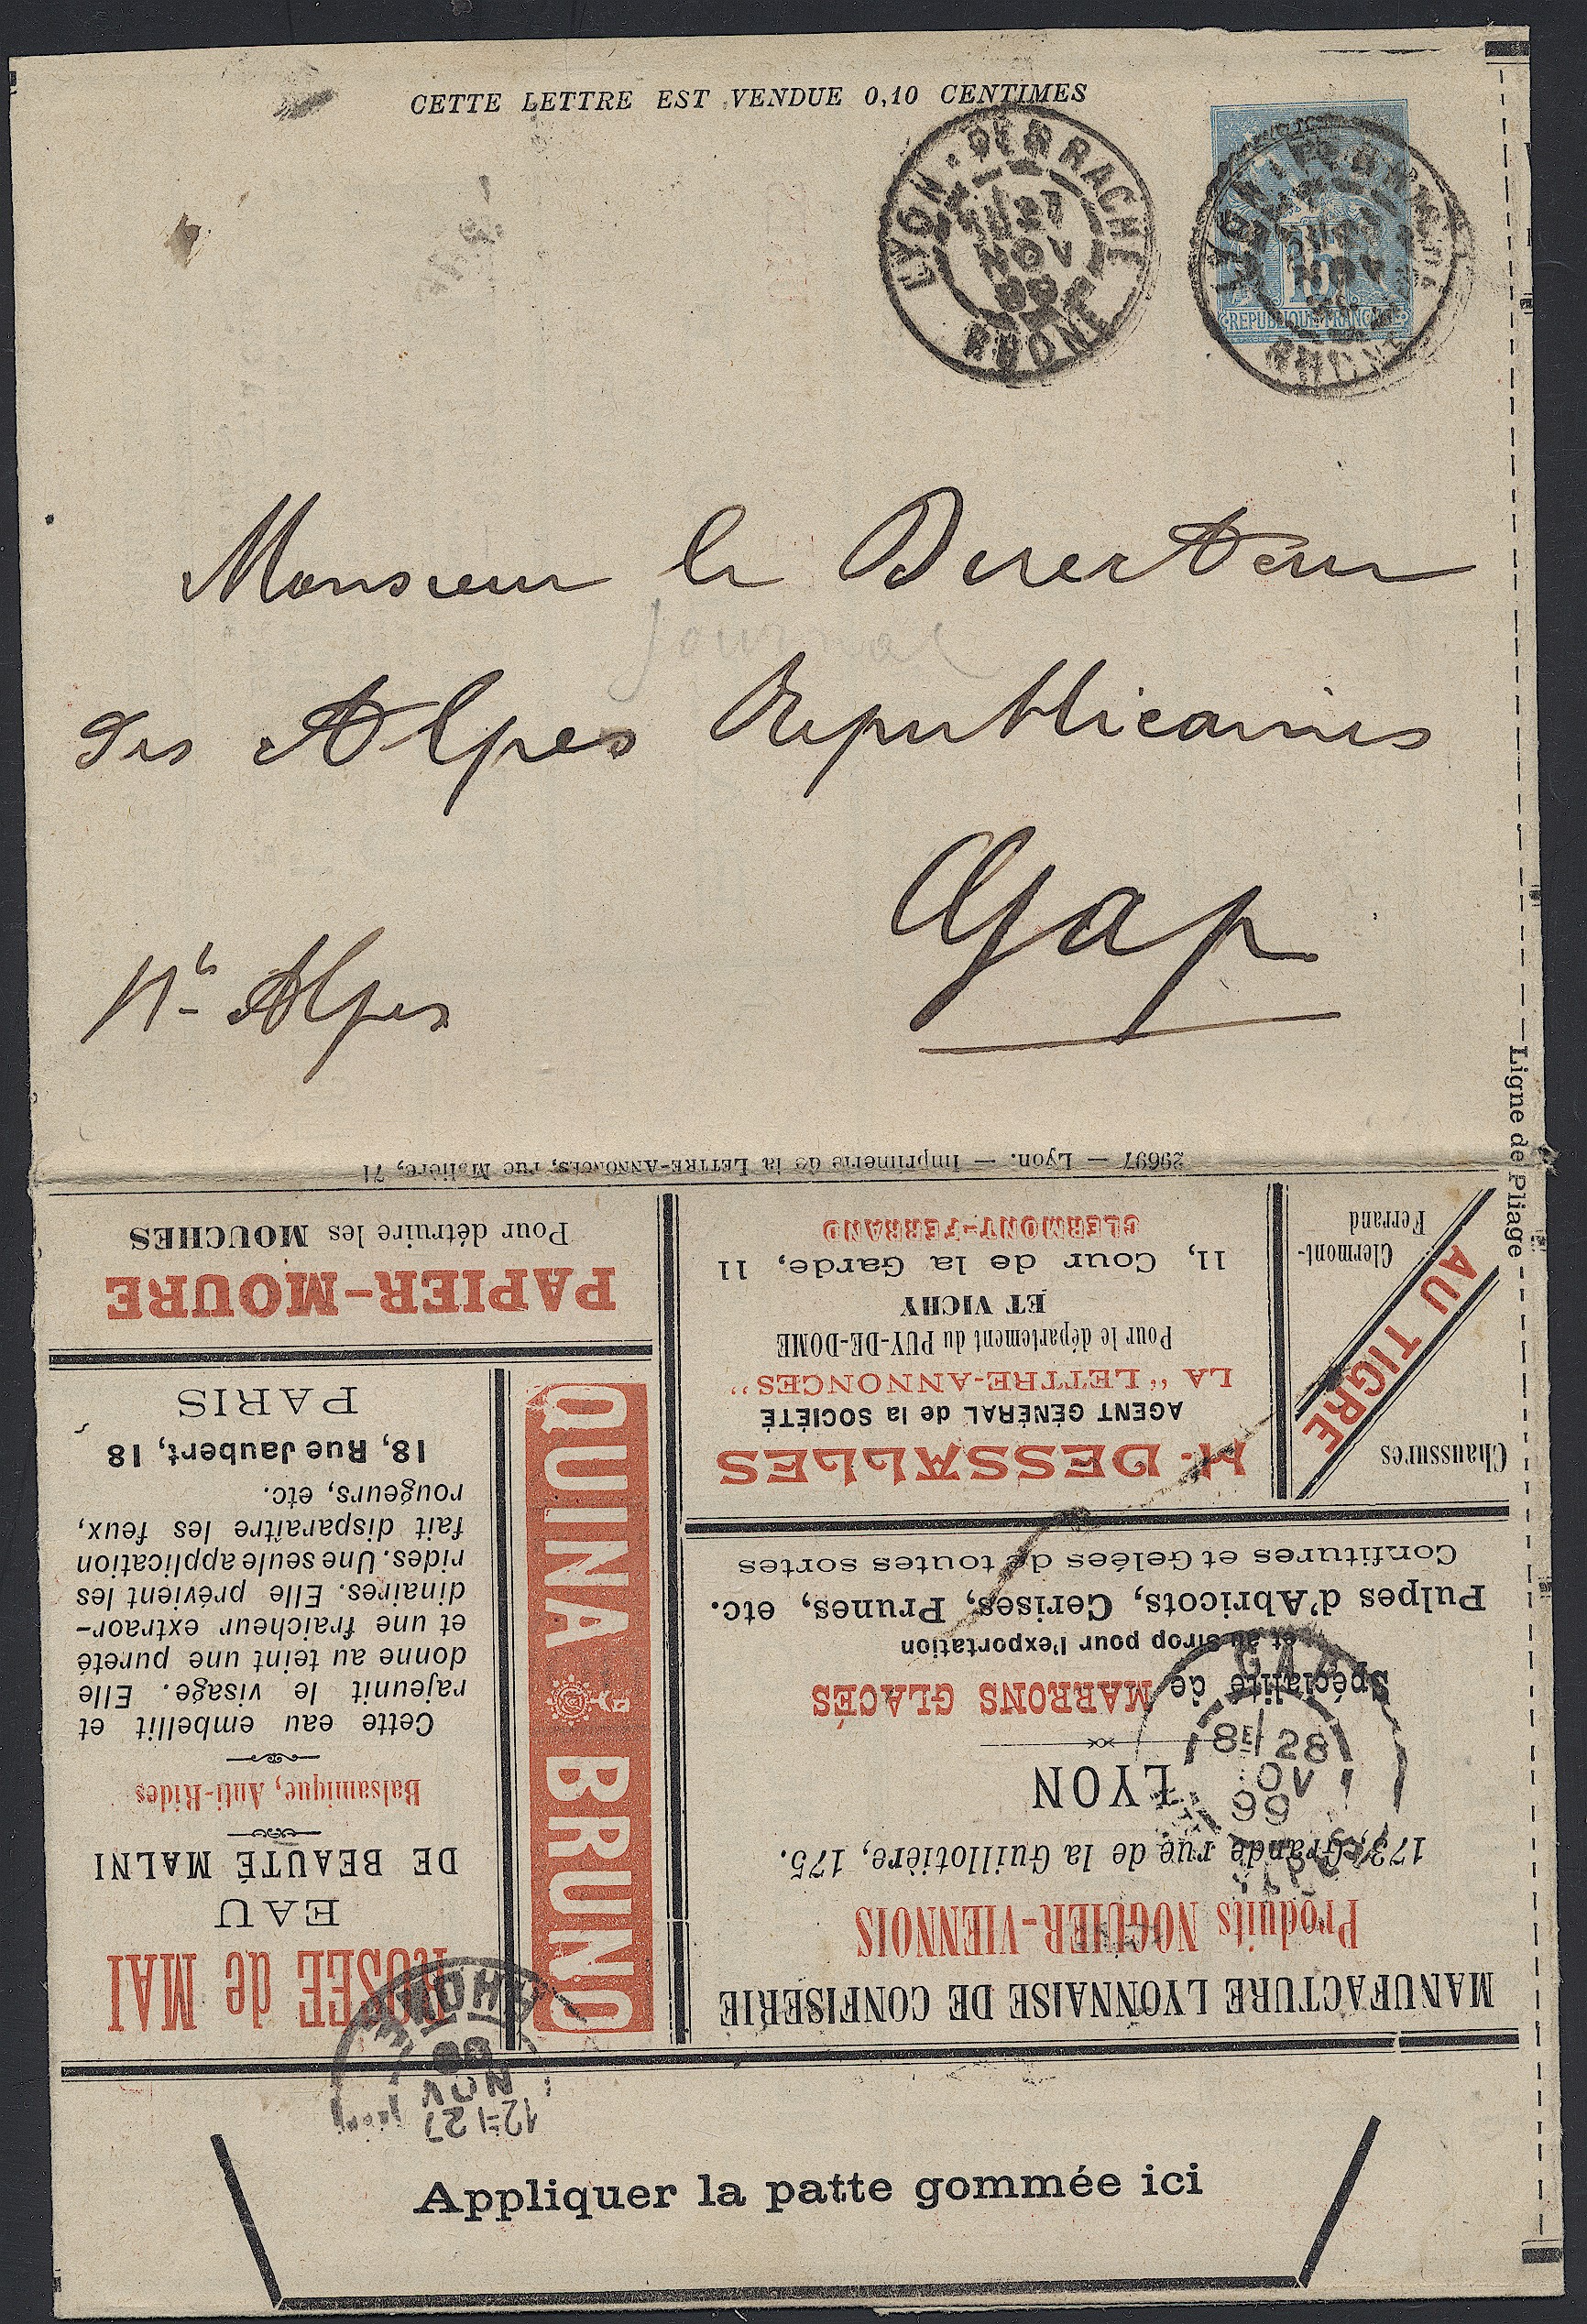 CETTE LETTRE EST VENDUE 0,10 CENTIMES
LYON-PERRACHE
27
NOV
99
RHONE
15
REPUBLIQUE FRANCAISE
Monsieur le Directeur
Journal
des Alpes Républicaines
Gap
Htes Alpes
Ligne de Pliage
29697 — Lyon. — Imprimerie de la LETTRE-ANNONCES, rue Molière, 71
MANUFACTURE LYONNAISE DE CONFISERIE
Produits NOGUIER-VIENNOIS
173, Grande rue de la Guillotière, 175.
LYON
Spécialité de MARRONS GLACÉS
et au sirop pour l'exportation
Pulpes d'Abricots, Cerises, Prunes, etc.
Confitures et Gelées de toutes sortes
QUINA BRUNO
ROSEE de MAI
EAU
DE BEAUTÉ MALNI
Balsamique, Anti-Rides
Cette eau embellit et
rajeunit le visage. Elle
donne au teint une pureté
et une fraîcheur extraor-
dinaires. Elle prévient les
rides. Une seule application
fait disparaître les feux,
rougeurs, etc.
18, Rue Jaubert, 18
PARIS
Chaussures
AU TIGRE
Clermont-
Ferrand
H. DESSALLES
AGENT GÉNÉRAL de la SOCIÉTÉ
LA "LETTRE-ANNONCES"
Pour le département du PUY-DE-DOME
ET VICHY
11, Cour de la Garde, 11
CLERMONT-FERRAND
PAPIER-MOURE
Pour détruire les MOUCHES
GAP
8E/28
NOV
99
12-1 27
NOV
99
RHONE
Appliquer la patte gommée ici